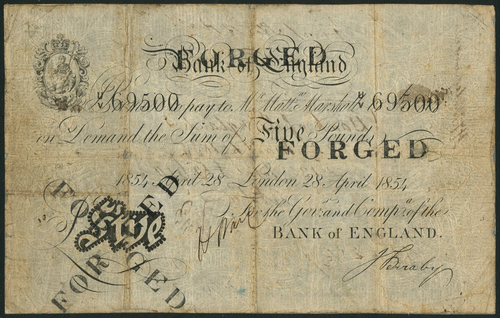 FORGED
Bank of England
69500 pay to Mr. Mattw. Marshall 69500
on Demand the Sum of Five Pounds
FORGED
1854 April 28 London 28 April 1854
For the Govr. and Compa. of the
Five
BANK OF ENGLAND.
FORGED
FORGED